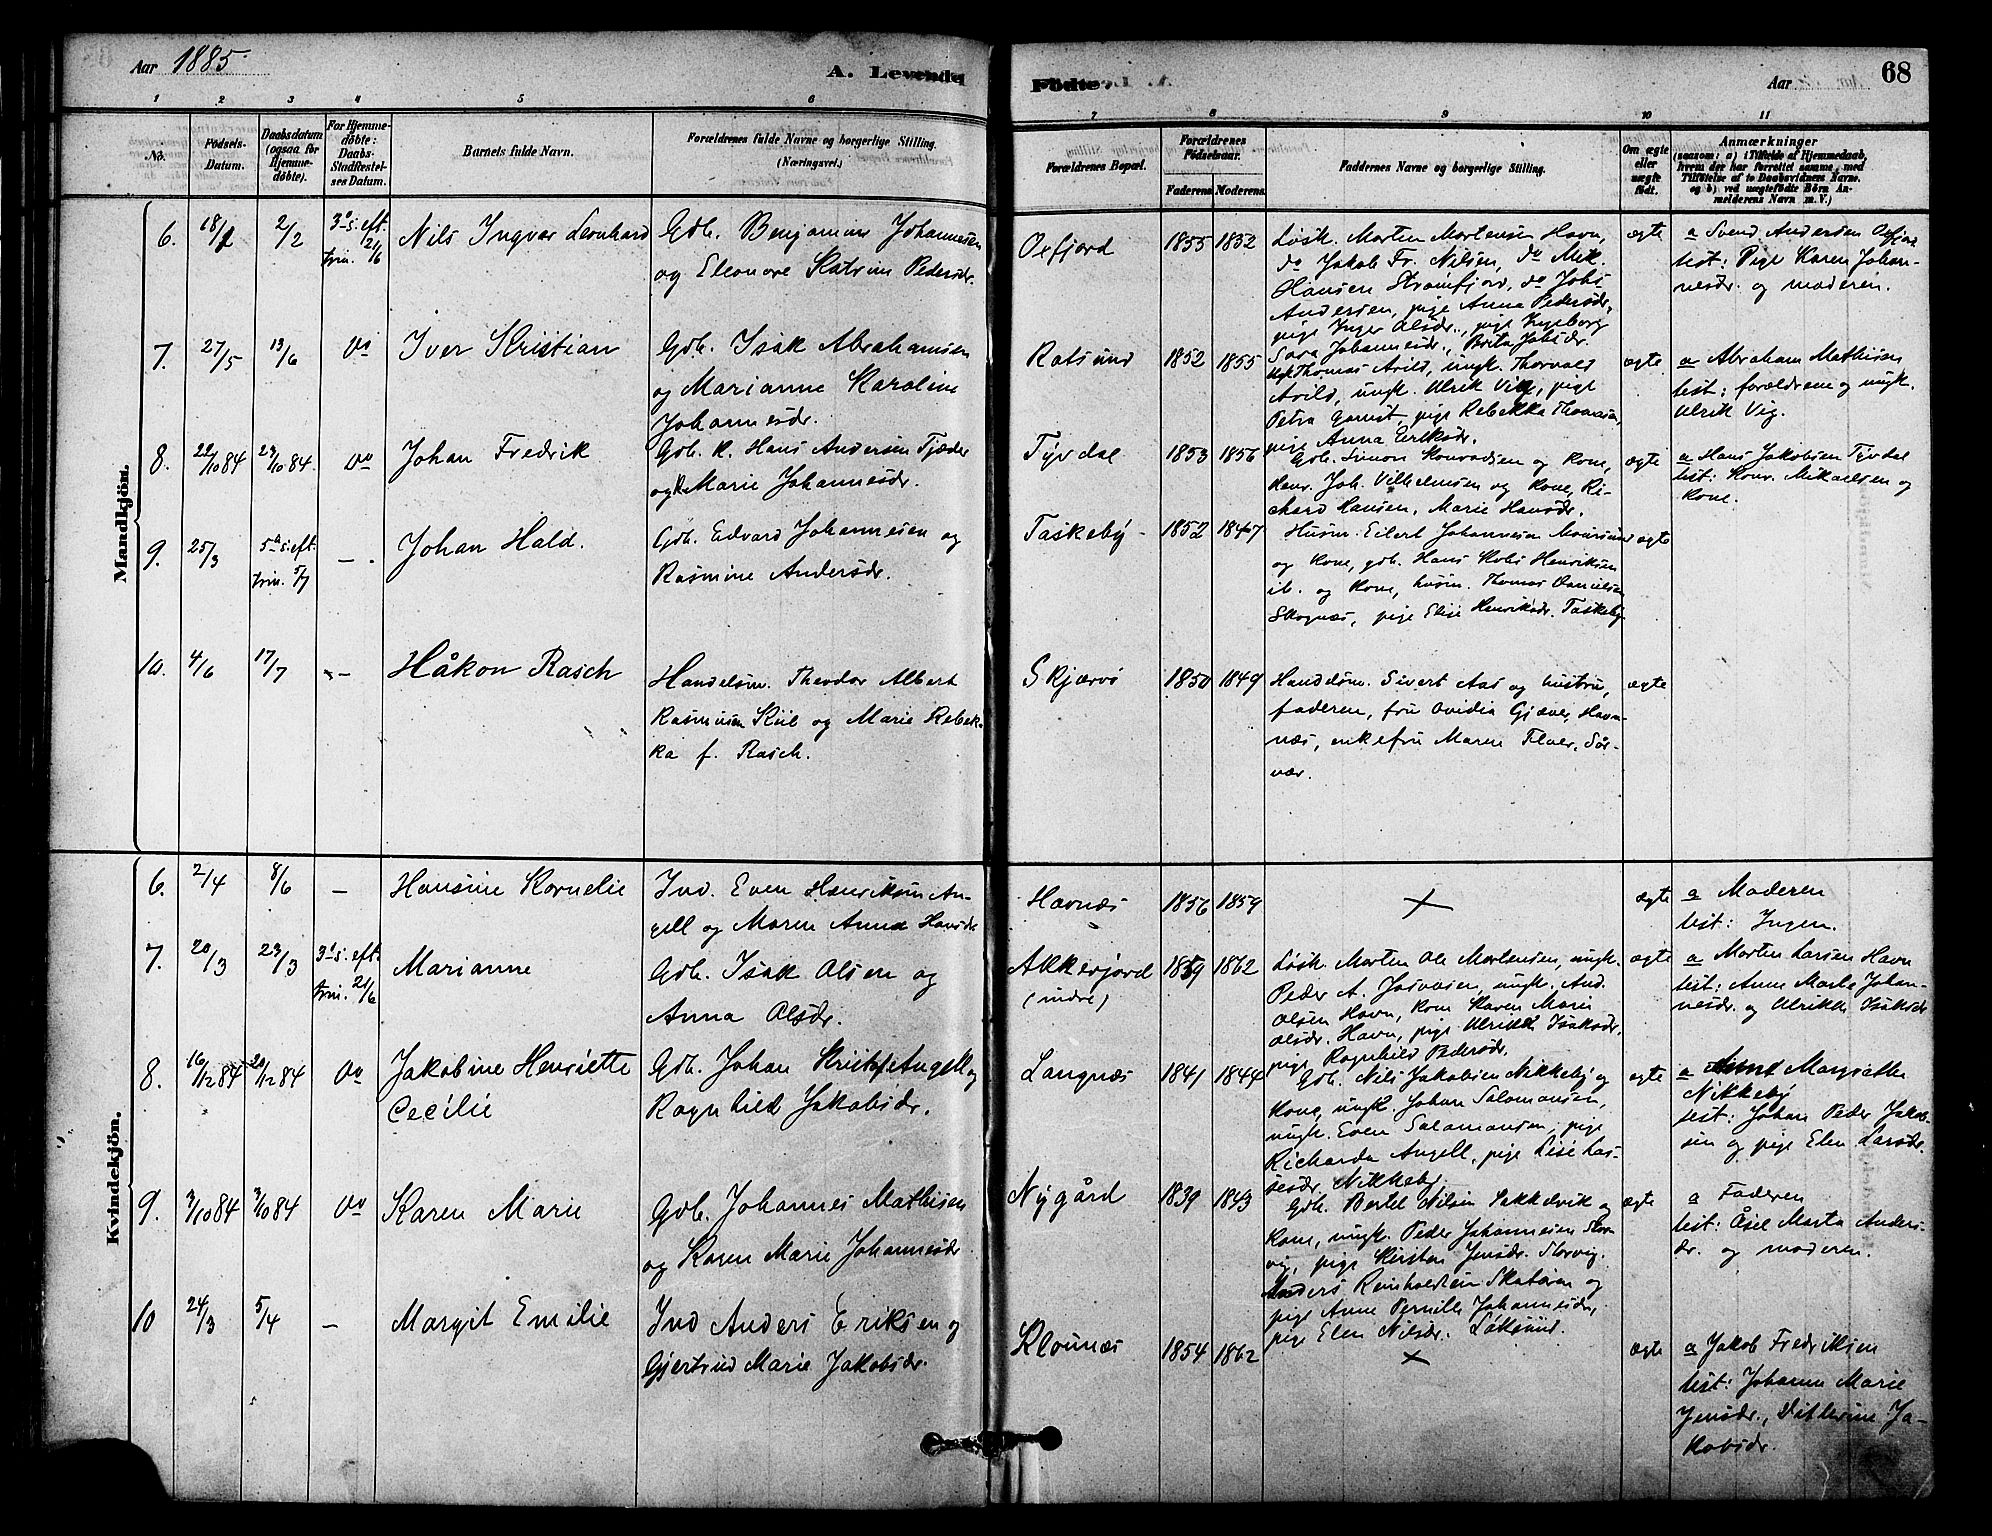 Aar 1885.
A. Levende
Födte.
Aar
68
1 2 3 4 5 6
7 8 9 10 11
No.
Födsels-Datum.
Daabsdatum (ogsaa for Hjemme-döbte).
For Hjemme-döbte: Daabs-Stadfæstel-ses Datum.
Barnets fulde Navn.
Forældrenes fulde Navne og borgerlige Stilling. (Næringsvei.)
Forældrenes Bopæl.
Forældrenes Födselsaar.
Faderens. Moderens.
Faddernes Navne og borgerlige Stilling.
Om ægte eller uægte födt.
Anmærkninger
(saasom: a) i Tilfælde af Hjemmedaab, hvem der har forrettet samme, med Tilföielse af to Daabsvidners Navne. og b) ved uægtefödte Börn An-melderens Navn m. V.)
Mandkjön.
6. 18/1 2/2 3die s. eft. trin. 21/6
Nils Ingvar Leonhard
Gdb. Benjamin Johannesen
og Eleonore Katrine Pedersdr.
Oxfjord 1855 1852
Løsk. Morten Mortensen Havn,
do Jakob Fr. Nilsen, do Mik.
Hansen Straumfjord, do Johs
Andersen, pige Anna Pedersdr,
pige Inger Olsdr., pige Ingeborg
Sara Johannesdr., Brita Johsdr.
ægte
a Svend Andersen Oxfjord
test: Pige Karen Johan-
nesdr. og moderen.
7. 27/5 13/6 do
Iver Kristian
Gdb. Isak Abrahamsen
og Marianne Karoline
Johannesdr.
Rotsund 1852 1855
Thomas Arild, ungk. Thorvald
Arild, ungk. Ulrik Vig, pige
Petra Garnet, pige Rebekka Thomasen,
pige Anna Eriksdr.
ægte
a Abraham Mathisen
test: forældrene og ungk.
Ulrik Vig.
8. 22/10 84 23/10 84. do
Johan Fredrik
Gdb. K. Hans Andersen Tjæder
og K. Marie Johannesdr.
Tyvdal 1853 1856
Gdb. Simon Konradsen og kone,
Kenr. Joh. Vilhelmsen og kone, Ri-
chard Hansen, Marie Hansdr.
ægte
a Hans Jakobsen Tyvdal
test: Konr. Mikaelsen og
kone.
9. 25/3 5te s. eft. trin. 5/7 —
Johan Hald.
Gdb. Edvard Johannesen og
Rasmine Andersdr.
Taskeby 1852 1847
Husm. Eilert Johannesen Maursund
og kone, gdb. Hans Kobs Henriksen
ib. og kone, husm. Thomas Danielsen
Skognæs, pige Elise Henriksdr. Taskeby
ægte
10. 4/6 17/7 —
Håkon Rasch
Handelsm. Theodor Albert
Rasmusen Kiil og Marie Rebek-
ka f. Rasch.
Skjærvø 1850 1849
Handelsm. Sivert Aas og hustru,
faderen, fru Ovidia Gjæver, Havn-
næs, enkefru Maren Floer, Sør-
vær.
ægte
Kvindekjön.
6. 2/4 8/6 —
Hansine Kornelie
Ind. Even Henriksen An-
gell og Maren Anna Hansdr
Havnæs 1856 1859
×
ægte
a Moderen
test: Ingen.
7. 20/3 23/3 3die s. eft. trin. 21/6
Marianne
Gdb. Isak Olsen og
Anna Olsdr.
Akkerfjord (indre) 1859 1862
Løsk. Morten Ole Mortensen, ungk.
Peder A. Josvasen, ungk. And.
Olsen Havn, kone Karen Marie
Olsdr. Havn, pige Ulrikke Isaksdr.
pige Ragnhild Pedersdr.
ægte
a Morten Larsen Havn
test: Anne Marte Johan-
nesdr. og Ulrikke Isaksdr
8. 16/12 84 20/12 84 do
Jakobine Henriette
Cecilie
Gdb. Johan Kristof Angell og
Ragnhild Jakobsdr.
Langnæs 1841 1844
Gdb. Nils Jakobsen Nikkeby og
kone, ungk. Johan Salomonsen,
ungk. Even Salamonsen, pige
Richarda Angell, pige Lise Las-
sesdr, Nikkeby
ægte
a Anne Margrethe
Nikkeby
test: Johan Peder Jakob-
sen og pige Elen Larsdr.
9. 3/10 84 3/10 84 do
Karen Marie
Gdb. Johannes Mathisen
og Karen Marie Johannesdr
Nygård 1839 1843
Gdb. Bertel Nilsen Sakkelvik og
kone, ungk. Peder Johannesen Stor-
vig, pige Kirsten Jensdr. Storvig.
Anders Reinholdtsen Skatøren og
pige Anne Pernille Johannesdr,
pige Elen Nilsdr. Løksund.
ægte
a Faderen
test: Åsel Marta Anders-
dr. og moderen.
10 24/3 5/4 —
Margit Emilie
Ind Anders Eriksen og
Gjertrud Marie Jakobsdr.
Klounæs 1854 1862
×
ægte
a Jakob Fredriksen
test: Johanna Marie
Jensdr., Kathrine Ja-
kobsdr.